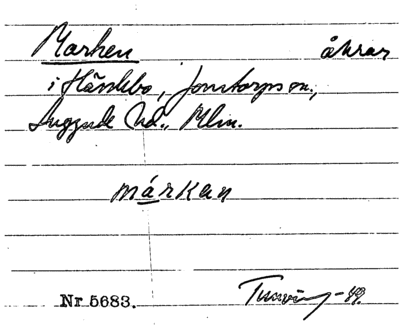 Marken åkrar
i Hässlebo, Jonstorps sn.,
Luggude hd., Mlm.
márkan
Nr 5683. -49.